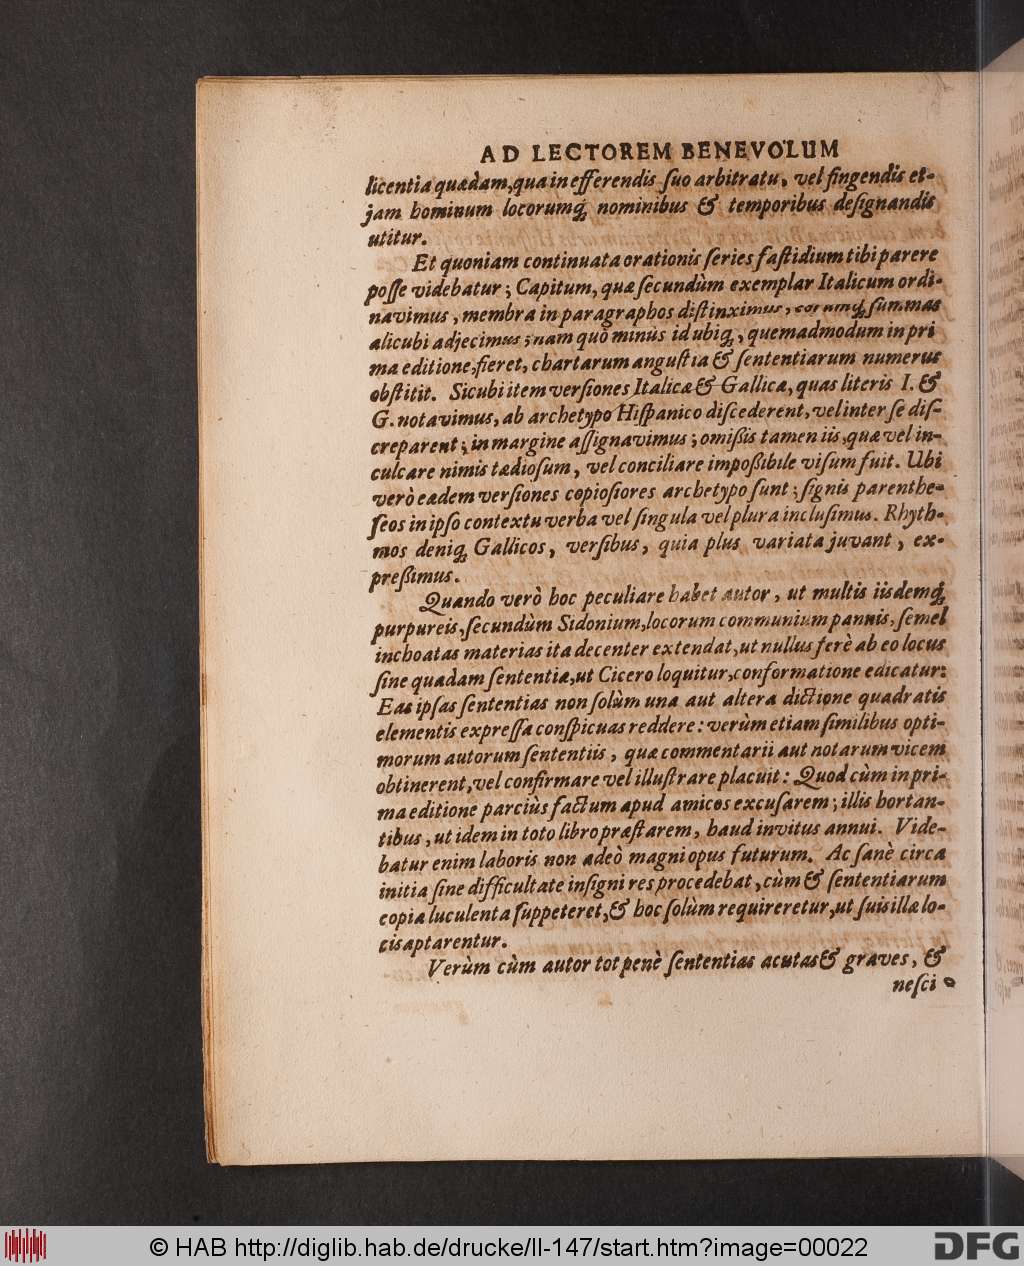 AD LECTOREM BENEVOLUM
licentia quædam, qua in efferendis ſuo arbitratu, vel fingendis et-
jam hominum locorumq́; nominibus & temporibus deſignandis
utitur.
Et quoniam continuata orationis ſeries faſtidium tibi parere
poſſe videbatur; Capitum, quæ ſecundùm exemplar Italicum ordi-
navimus, membra in paragraphos diſtinximus, eorumq́; ſummas
alicubi adjecimus; nam quò minùs id ubiq́;, quemadmodum in pri
ma editione, fieret, chartarum anguſtia & ſententiarum numerus
obſtitit. Sicubi item verſiones Italica & Gallica, quas literis I. &
G. notavimus, ab archetypo Hiſpanico diſcederent, vel inter ſe diſ-
creparent; in margine aſſignavimus; omißis tamen iis, quæ vel in-
culcare nimis tædioſum, vel conciliare impoßibile viſum fuit. Ubi
verò eædem verſiones copioſiores archetypo ſunt; ſignis parenthe-
ſeos in ipſo contextu verba vel ſingula vel plura incluſimus. Rhyth-
mos deniq́; Gallicos, verſibus, quia plus variata juvant, ex-
preßimus.
Quando verò hoc peculiare habet autor, ut multis iisdemq́;
purpureis, ſecundùm Sidonium, locorum communium pannis, ſemel
inchoatas materias ita decenter extendat, ut nullus ferè ab eo locus
ſine quadam ſententia, ut Cicero loquitur, conformatione edicatur:
Eas ipſas ſententias non ſolùm una aut altera dictione quadratis
elementis expreſſa conſpicuas reddere: verùm etiam ſimilibus opti-
morum autorum ſententiis, quæ commentarii aut notarum vicem
obtinerent, vel confirmare vel illuſtrare placuit: Quod cùm in pri-
ma editione parciùs factum apud amicos excuſarem; illis hortan-
tibus, ut idem in toto libro præſtarem, haud invitus annui. Vide-
batur enim laboris non adeò magni opus futurum. Ac ſanè circa
initia ſine difficultate inſigni res procedebat, cùm & ſententiarum
copia luculenta ſuppeteret, & hoc ſolùm requireretur, ut ſuis illa lo-
cis aptarentur.
Verùm cùm autor tot penè ſententias acutas & graves, &
neſci
© HAB http://diglib.hab.de/drucke/ll-147/start.htm?image=00022
DFG